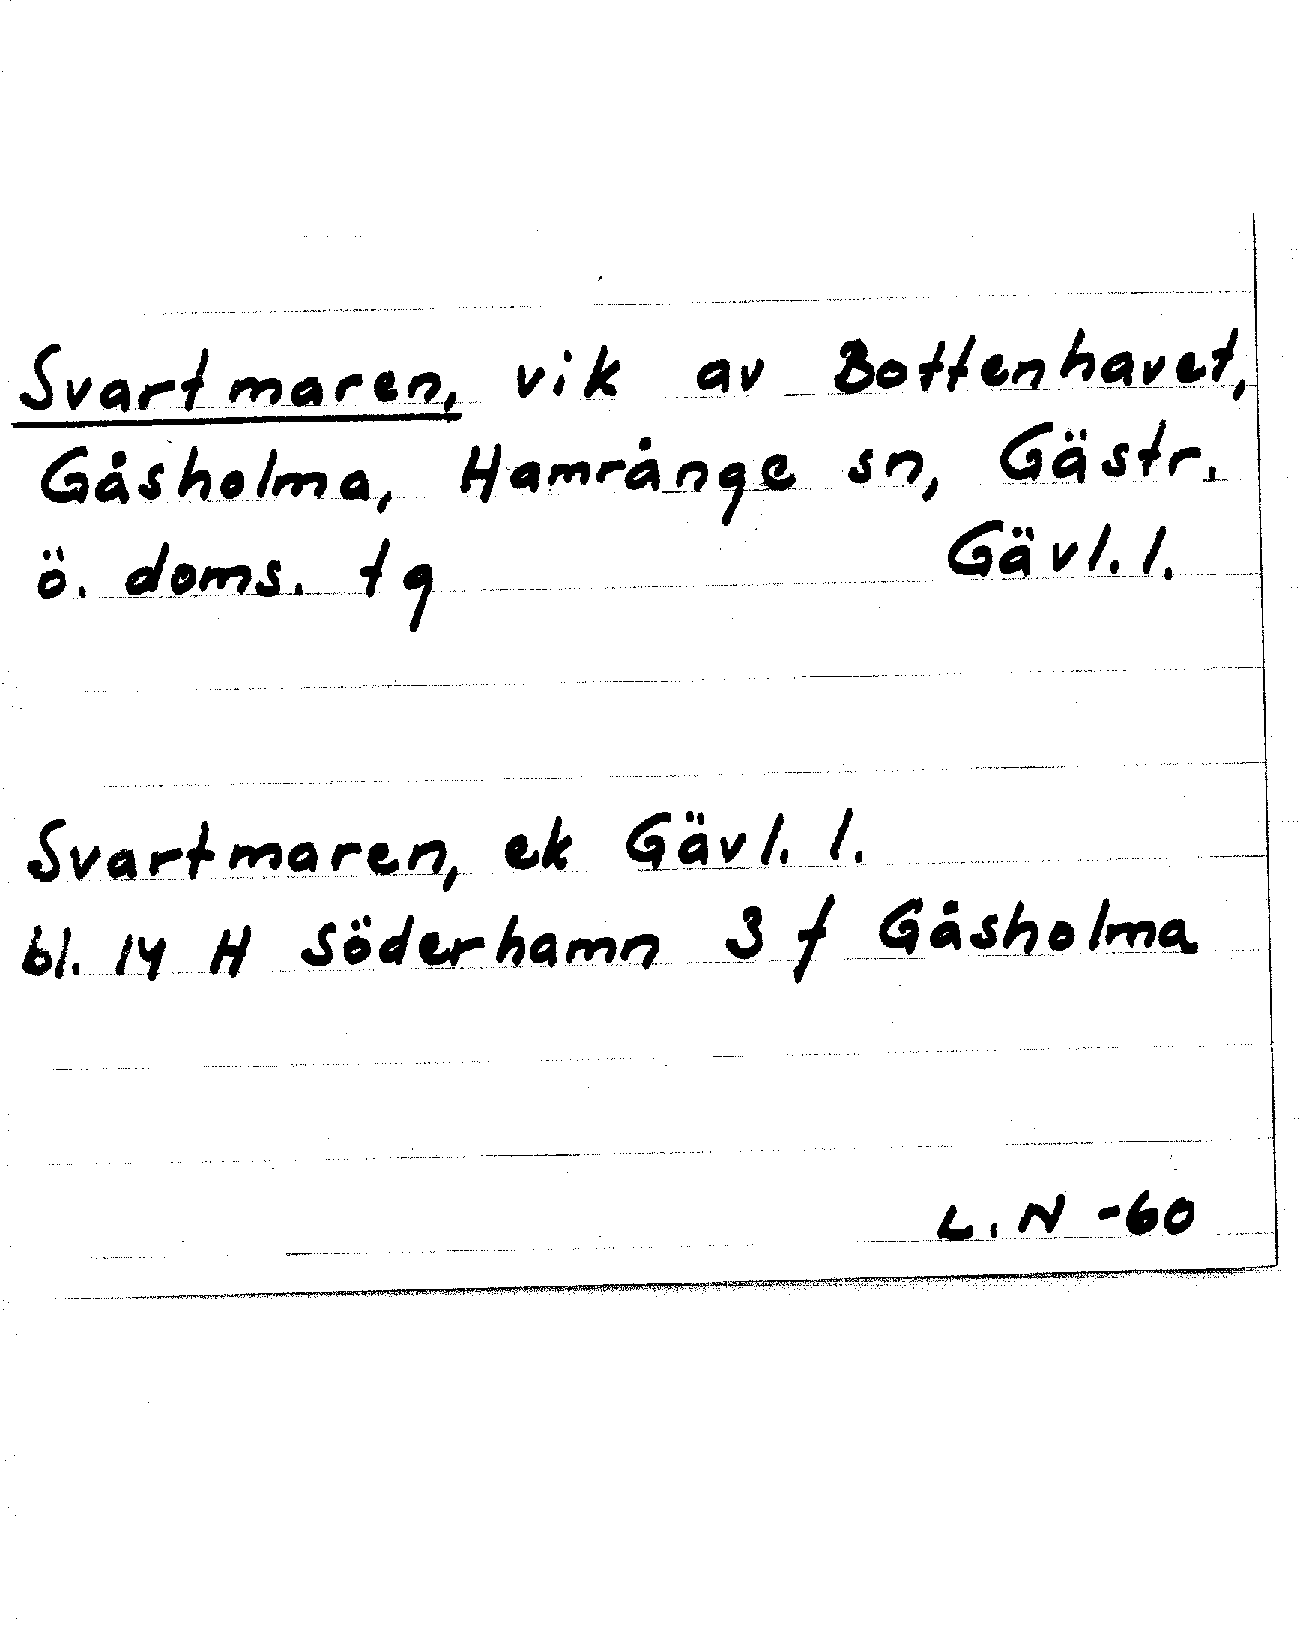 Svartmaren, vik av Bottenhavet,
Gåsholma, Hamrånge sn, Gästr.
ö. doms. tg Gävl. l.
Svartmaren, ek Gävl. l.
bl. 14 H Söderhamn 3 f Gåsholma
L. N -60